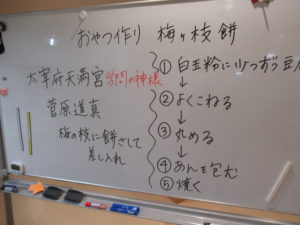 おやつ作り 梅ヶ枝餅
太宰府天満宮 学問の神様
菅原道真
梅の枝に餅さして
差し入れ
① 白玉粉に少つずつ豆
↓
② よくこねる
↓
③ 丸める
↓
④ あんを包む
⑤ 焼く